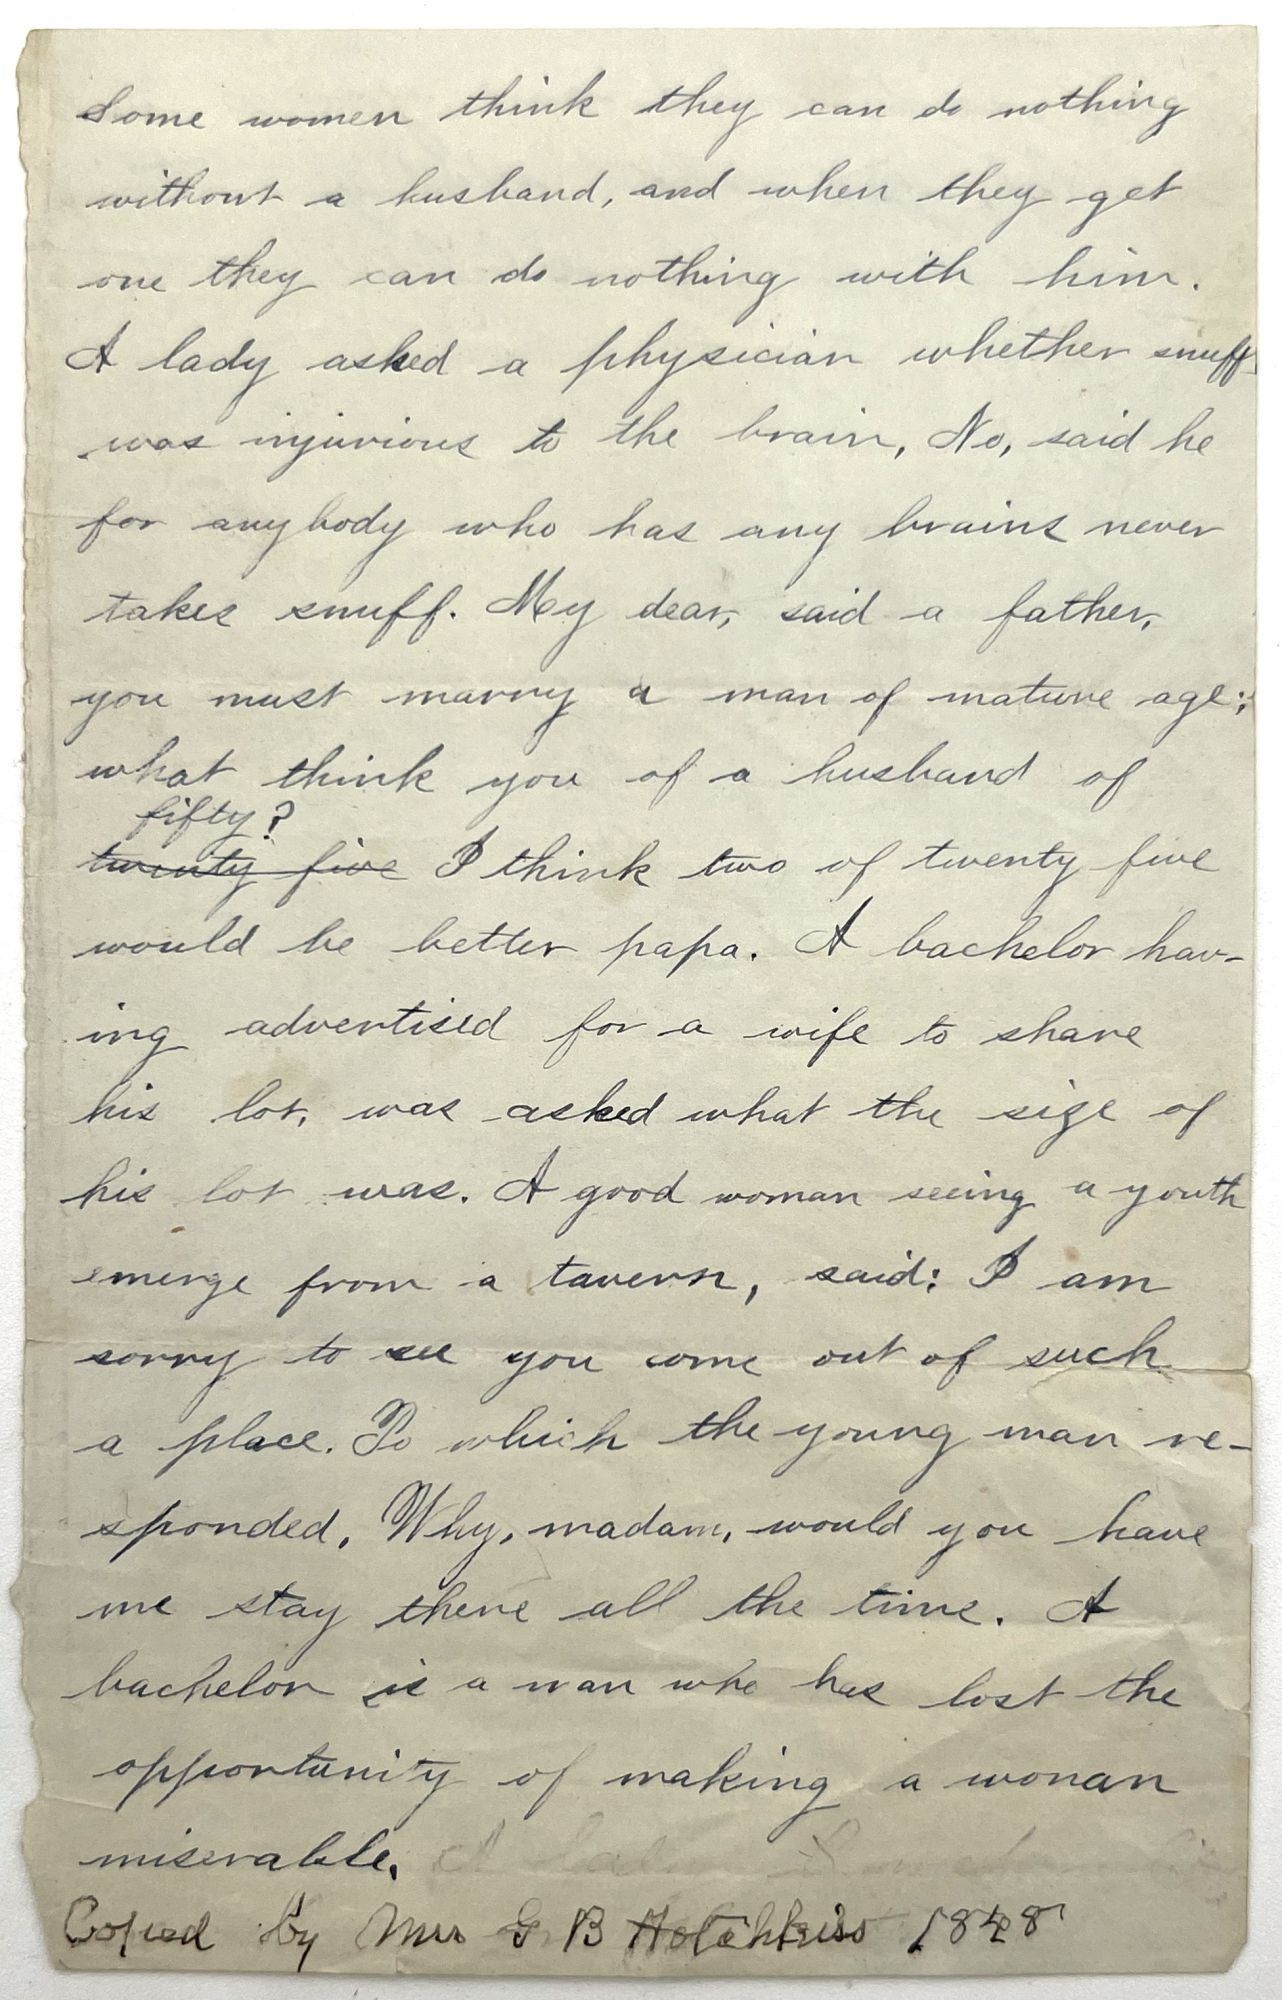 Some women think they can do nothing
without a husband, and when they get
one they can do nothing with him.
A lady asked a physician whether snuff
was injurious to the brain, No, said he
for anybody who has any brains never
takes snuff. My dear, said a father,
you must marry a man of mature age;
what think you of a husband of
fifty?
twenty five I think two of twenty five
would be better papa. A bachelor hav-
ing advertised for a wife to share
his lot, was asked what the size of
his lot was. A good woman seeing a youth
emerge from a tavern, said: I am
sorry to see you come out of such
a place. To which the young man re-
sponded, Why, madam, would you have
me stay there all the time. A
bachelor is a man who has lost the
opportunity of making a woman
miserable. A
Copied by Mrs G B Hotchkiss 1848